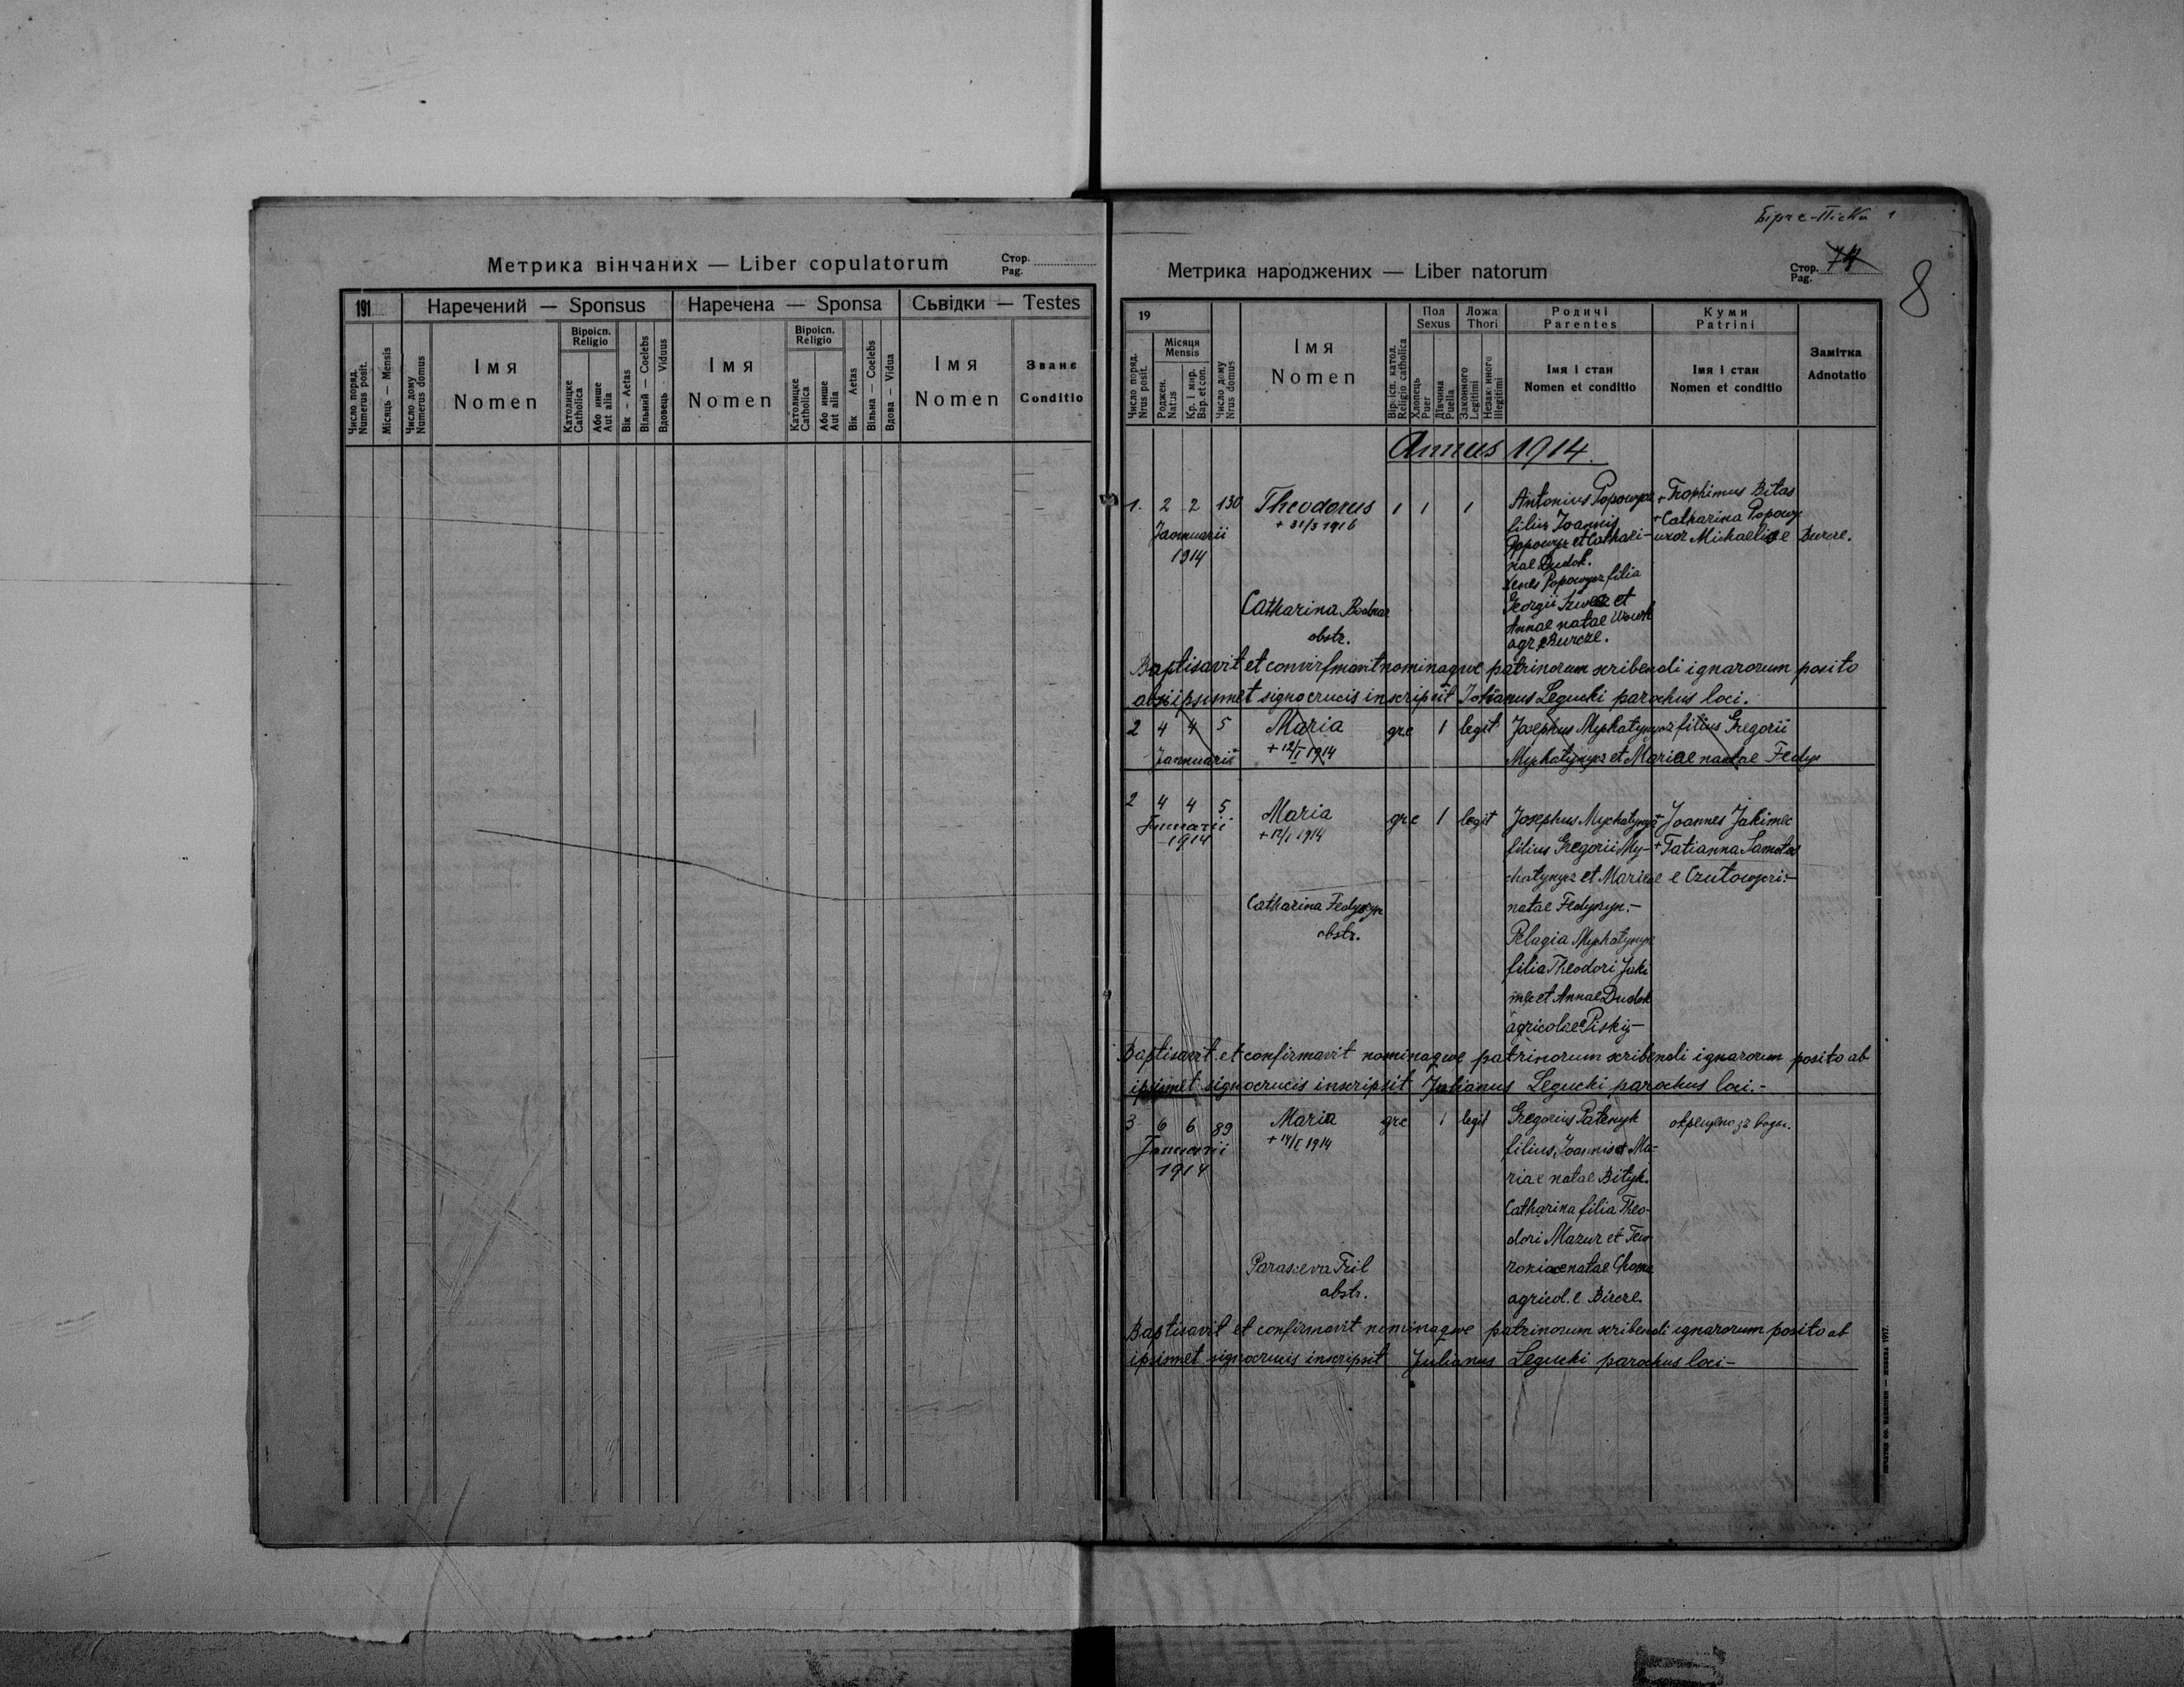 Метрика вінчаних — Liber copulatorum
Стор.
Pag.
191
Наречений — Sponsus
Наречена — Sponsa
Сьвідки — Testes
Число поряд.
Numerus posit.
Місяць — Mensis
Число дому
Numerus domus
Імя
Nomen
Віроісп.
Religio
Католицке
Catholica
Або инше
Aut alia
Вік — Aetas
Вільний — Coelebs
Вдовець — Viduus
Імя
Nomen
Віроісп.
Religio
Католицке
Catholica
Або инше
Aut alia
Вік Aetas
Вільна — Coelebs
Вдова — Vidua
Імя
Nomen
Званє
Conditio
1
Метрика народжених — Liber natorum
Стор.
Pag.
74
8
19
Число поряд.
Nrus posit.
Місяця
Mensis
Роджен.
Natus
Кр. і мир.
Bap. et con.
Число дому
Nrus domus
Імя
Nomen
Вір. ісп. катол.
Religio catholica
Пол
Sexus
Хлопець
Puer
Дівчина
Puella
Ложа
Thori
Законного
Legitimi
Незаконного
Illegitimi
Родичі
Parentes
Імя і стан
Nomen et conditio
Куми
Patrini
Імя і стан
Nomen et conditio
Замітка
Adnotatio
Annus 1914.
1. 2 2 130 Theodorus 1 1 1 Antonius Popowycz + Trophimus Bitas
Januarii + 31/3 1916 filius Joannis + Catharina Popowy
1914 Popowycz et Cathari- uxor Michaelis e Bircze.
nae Dudok.
Popowycz filia
Catharina Bodnar Georgii et
obstr. Annae natae
agr. e Bircze.
Baptisavit et convirfmavit nominaque patrinorum scribendi ignarorum posito
ab ipsismet signo crucis inscripsit Julianus Legucki parochus loci.
2 4 4 5 Maria gre 1 legit Josephus Mychatyncyz filius Gregorii
Januarii + 12/I 1914 Mychatynycz et Mariae natae Fedys
2 4 4 5 Maria gre 1 legit Josephus Mychatynycz + Joannes Jakimec
Januarii + 12/I 1914 filius Gregorii My- + Tatianna
1914 chatynycz et Mariae e
Catharina Fedyszyn natae Fedyszyn.-
obstr. Pelagia Mychatynycz
filia Theodori Jaki
mec et Annae Dudok
agricolae e Pisky-
Baptisavit et confirmavit nominaque patrinorum scribendi ignarorum posito ab
ipsismet signo crucis inscripsit Julianus Legucki parochus loci.-
3 6 6 89 Maria gre 1 legit Gregorius
Januarii + 14/I 1914 filius Joannis et Ma-
1914 riae natae Bityk.
Catharina filia Theo-
dori Mazur et Few
Parasceva Fril roniae natae Choma
obstr. agricol. e Bircze.
Baptisavit et confirmavit nominaque patrinorum scribendi ignarorum posito ab
ipsismet signo crucis inscripsit Julianus Legucki parochus loci-